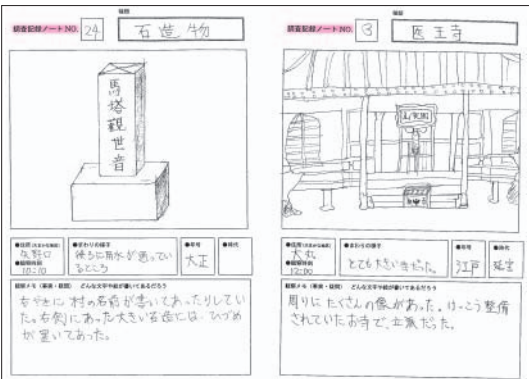 種類
調査記録ノートNO. 24 石造物
馬塔観世音
●住所(大まかな地名)
矢野口
●観察時刻
10:10
●まわりの様子
後ろに用水が通っているところ
●年号
大正
●時代
観察メモ(事実・疑問) どんな文字や絵が書いてあるだろう
右や左に村の名前が書いてあったりしてい
た。右側にあった大きい石造には、ひづめ
が置いてあった。
種類
調査記録ノートNO. 3 医王寺
●住所(大まかな地名)
大丸
●観察時刻
12:00
●まわりの様子
とても大きい寺だった。
●年号
江戸
●時代
延宝
観察メモ(事実・疑問) どんな文字や絵が書いてあるだろう
周りにたくさんの像があった。けっこう整備
されていたお寺で、立派だった。